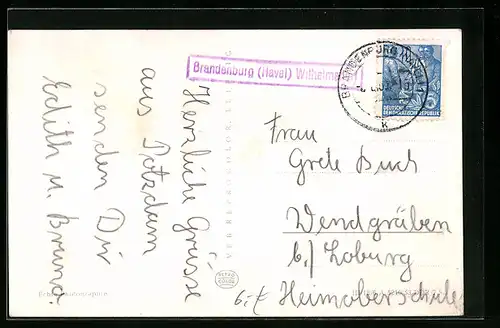 Brandenburg (Havel) Wilhelms
BRANDENBURG (HAVEL) 1
k
DEUTSCHE
DEMOKRATISCHE REPUBLIK
Herzliche Grüsse
aus Potsdam
senden Dir
Edith u. Bruno.
Frau
Grete Buch
Wendgräben
b./ Loburg
Heimoberschule